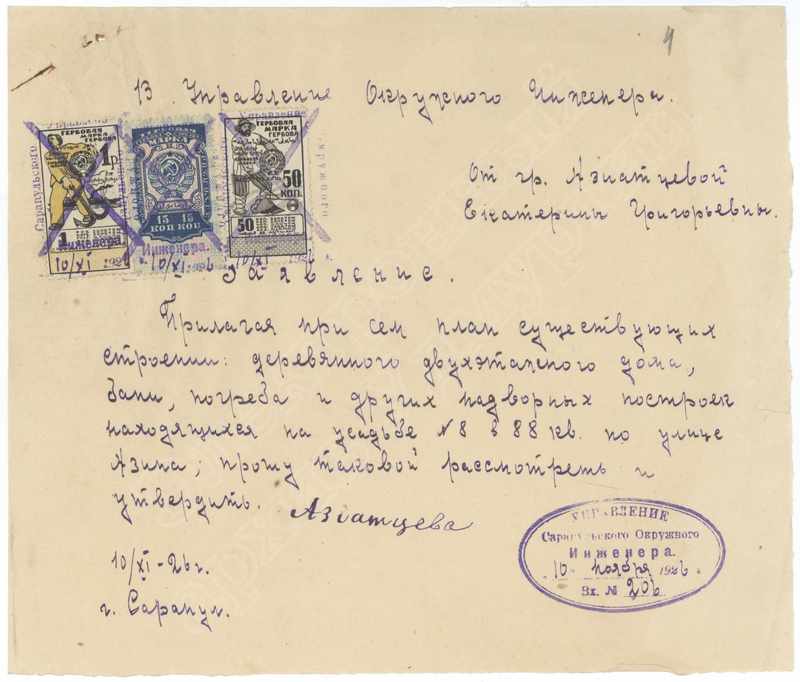 4
В Управление Окружного Инженера.
От гр. Азиатцевой
Екатерины Григорьевны.
Сарапульского
ГЕРБОВАЯ
МАРКА
ГЕРБОВА
1 р
1
Инженера.
10/XI 1926
МАРКА
15 15
КОП КОП
Инженера.
10/XI 1926
Управление
ГЕРБОВАЯ
МАРКА
ГЕРБОВА
50
КОП.
50
Окружного
10/XI 1926
Заявление.
Прилагая при сем план существующих
строении: деревянного двухэтажного дома,
бани, погреба и других надворных построек
находящихся на усадьбе №8 в 88 кв. по улице
Азина; прошу таковой рассмотреть и
утвердить. Азиатцева
10/XI-26 г.
г. Сарапул.
УПРАВЛЕНИЕ
Сарапульского Окружного
Инженера.
10 ноября 1926
Вх. № 206